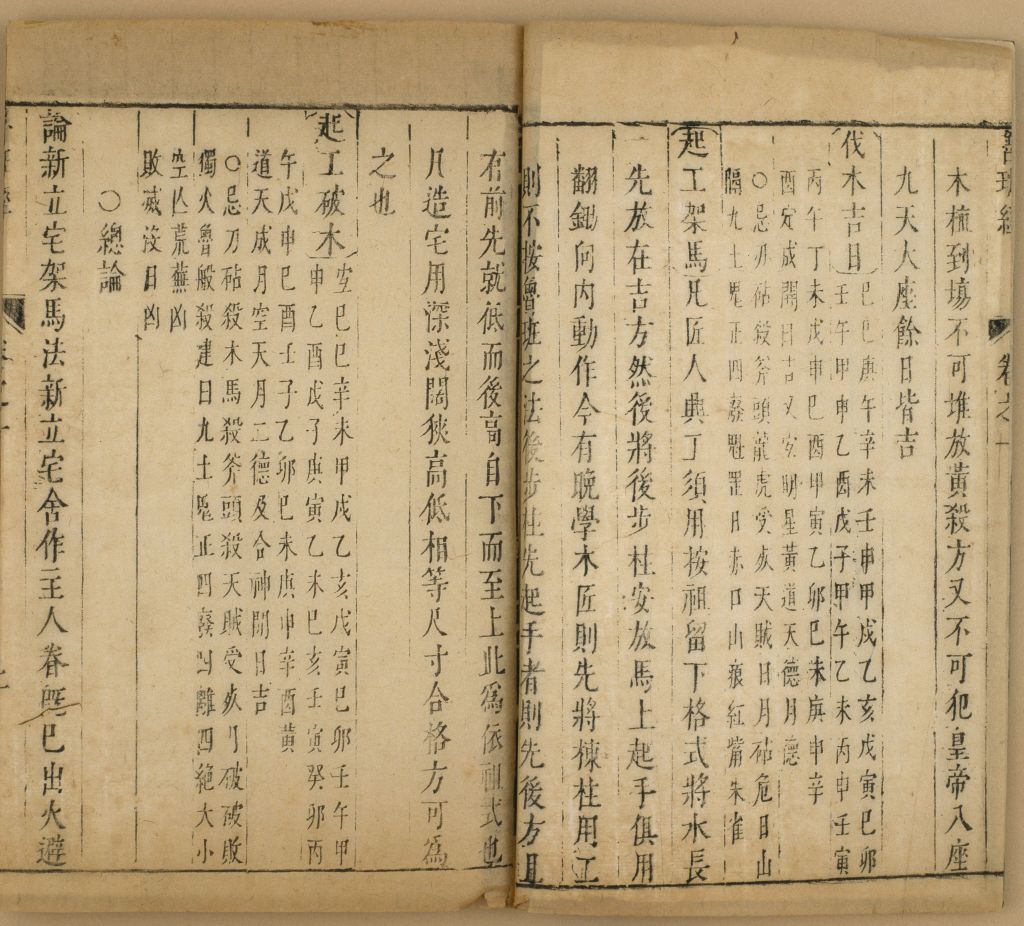 魯班經
卷之一
木植到塲不可堆放黃殺方又不可犯皇帝八座
九天大座餘日皆吉
伐木吉日
己巳庚午辛未壬申甲戌乙亥戊寅己卯
壬午甲申乙酉戊子甲午乙未丙申壬寅
丙午丁未戊申己酉甲寅乙卯己未庚申辛
酉定成開日吉又宜明星黃道天德月德
○忌刃砧殺斧頭龍虎受死天賊日月砧危日山
隔九土鬼正四廢魁罡日赤口山痕紅觜朱雀
起工架馬凡匠人興工須用按祖留下格式將水長
一先放在吉方然後將後步柱安放馬上起手俱用
翻鋤向內動作今有晚學木匠則先將棟柱用工
則不按魯班之法後步柱先起手者則先後方且
有前先就低而後高自下而至上此爲依祖式也
凡造宅用深淺闊狹高低相等尺寸合格方可爲
之也
起工破木
宜己巳辛未甲戌乙亥戊寅己卯壬午甲
申乙酉戊子庚寅乙未己亥壬寅癸卯丙
午戊申己酉壬子乙卯己未庚申辛酉黃
道天成月空天月二德及合神開日吉
○忌刀砧殺木馬殺斧頭殺天賊受死月破破敗
獨火魯般殺建日九土鬼正四廢四離四絶大小
空亡荒蕪凶
敗滅沒日凶
○總論
論新立宅架馬法新立宅舍作主人眷既已出火避